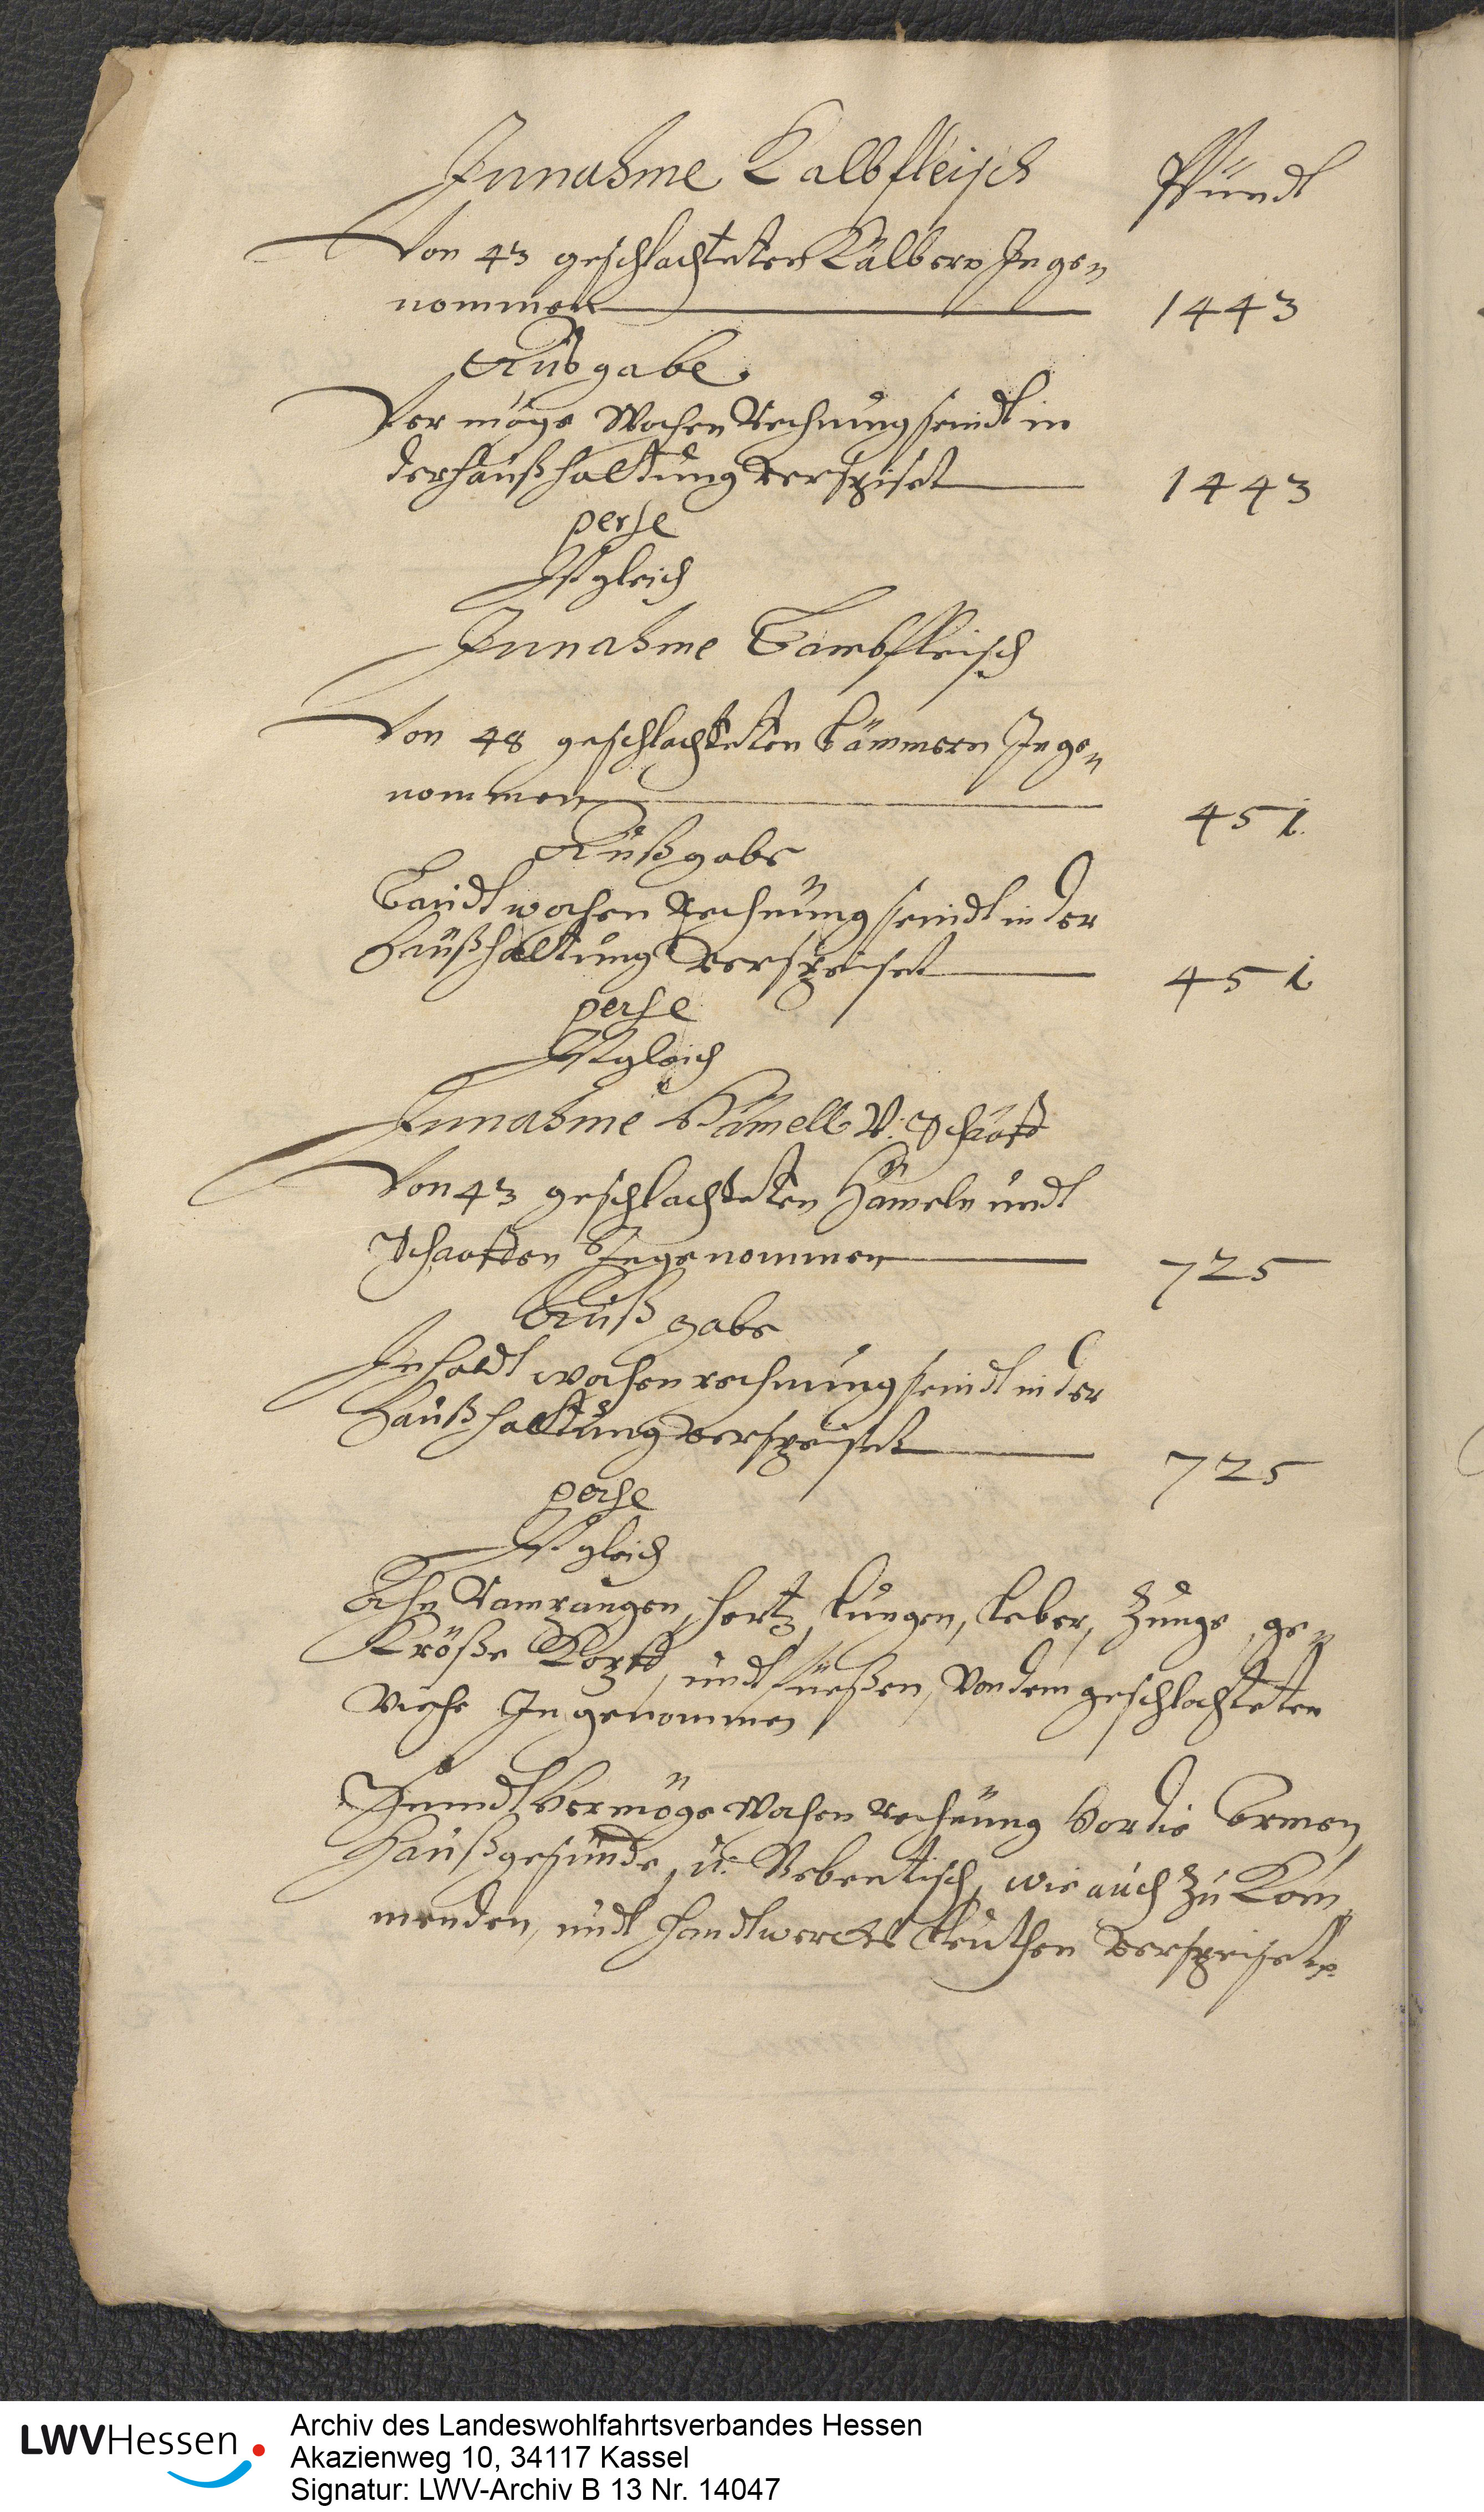 Innahme Kalbfleisch
Pfundt
Von 43 geschlachteten Kälbern Inge,
nommen 1443
Ausgabe
Vermöge Wochen Rechnung seindt in
der haußhaltung verspiset 1443
perse
Ist gleich
Innahme Lambfleisch
Von 48 geschlachteten Lämmern Inge,
nommen 451.
Außgabe
Laudt wochen Rechnung seindt in der
Haußhaltung verspeiset 451
perse
Ist gleich
Innahme Hämell v: Schaaff
Von 43 geschlachteten Hämeln undt
Schaaffen Ingenommen 725
Auß gabe
Inhaldt wochen rechnung seindt in der
Haußhaltung verspeiset 725
perse
Ist gleich
hertz, Lungen, Leber, Zunge, ge,
Kröße undt füeßen, Von dem geschlachteten
Viehe Ingenommen
Seindt Vermöge Wochen Rechnung Vor die Armen,
Haußgesinde, u: Nebentisch, wie auch Zu Kom,
menden, undt handtwercks Leuthen verspeiset
LWVHessen
Archiv des Landeswohlfahrtsverbandes Hessen
Akazienweg 10, 34117 Kassel
Signatur: LWV-Archiv B 13 Nr. 14047